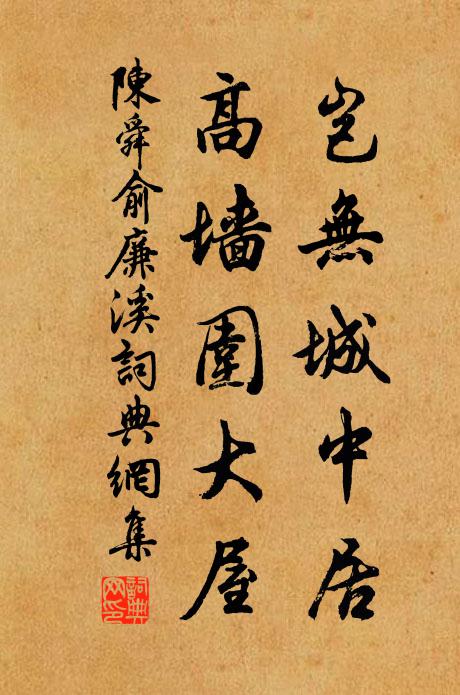 豈無城中居
高墻圍大屋
陳舜俞廉溪詞典網集
詞典網印